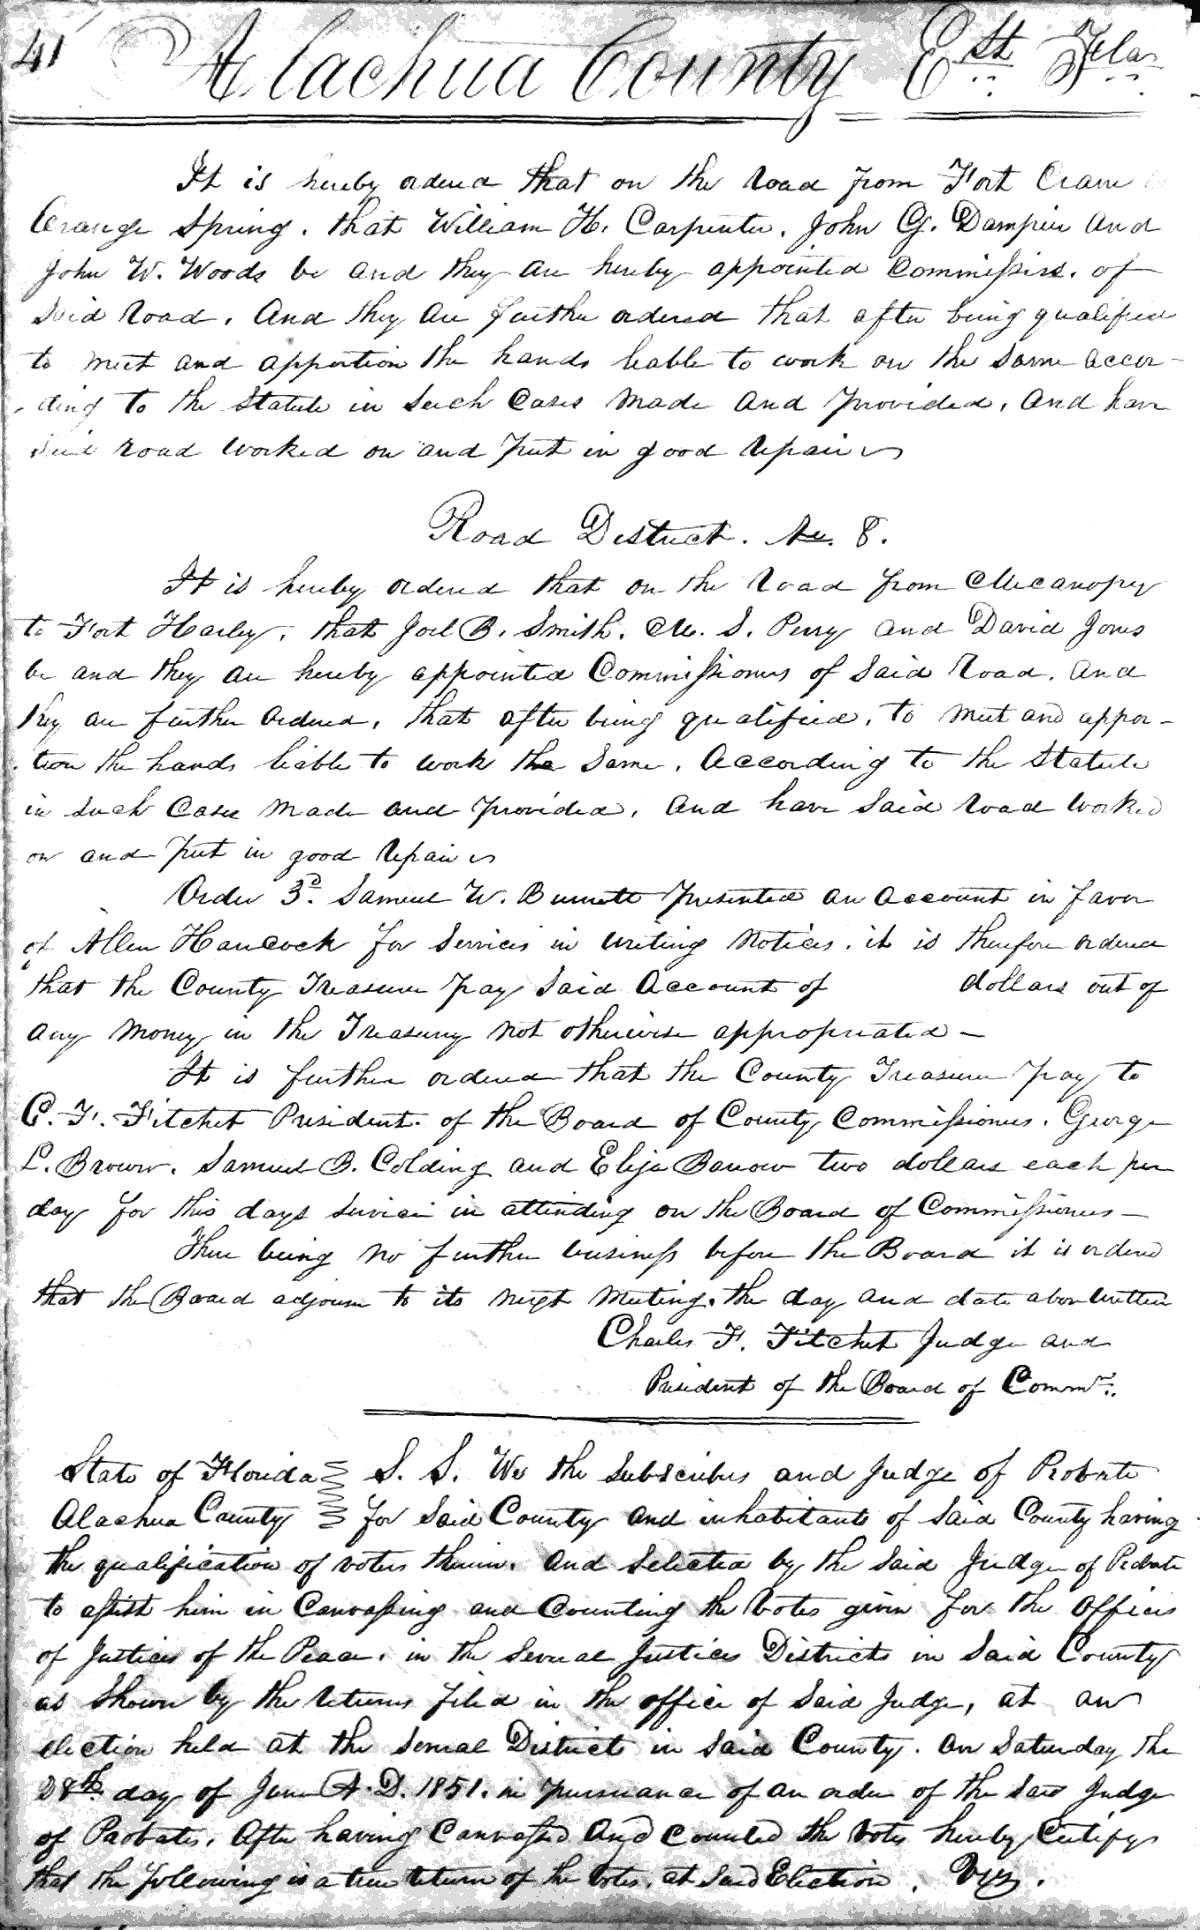 41 Alachua County Est Fla
It is hereby ordered that on the road from Fort Crane
Orange Spring. that William H. Carpenter. John G. Dampier and
John W. Woods be and they are hereby appointed Commissrs. of
Said road. And they are further ordered that after being qualified
to meet and apportion the hands liable to work on the same accor-
ding to the Statute in such cases made and provided. And have
said road worked on and put in good repair
Road District. No. 8.
It is hereby ordered that on the road from Mecanopy
to Fort Harley, that Joel B. Smith. M. S. Perry and David Jones
be and they are hereby appointed Commissioners of Said road. And
they are further ordered, that after being qualified, to meet and appor-
tion the hands liable to work the same. According to the Statute
in such cases made and provided. And have said road worked
on and put in good repair
Order 3d. Samuel W. Burnett presented an account in favor
of Allen Hancock for services in writing notices. it is therefore ordered
that the County Treasurer pay said account of dollars out of
any money in the Treasury not otherwise appropriated —
It is further ordered that the County Treasurer pay to
C. F. Fitchet President. of the Board of County Commissioners. George
L. Brown. Samuel B. Colding and Elija Barrow two dollars each per
day for this days service in attending on the Board of Commissioners —
There being no further business before the Board it is ordered
that the Board adjourn to its next meeting. the day and date above written
Charles F. Fitchet Judge and
President of the Board of Commrs.
State of Florida S. S. We the subscribers and Judge of Probate
Alachua County for Said County and inhabitants of said County having
the qualification of voters therein. And selected by the said Judge of Probate
to assist him in Canvassing and counting the votes given for the offices
of Justices of the Peace. in the several Justices Districts in Said County
as shown by the returns filed in the office of said Judge, at an
election held at the several Districts in said County. on Saturday the
28th day of June A.D. 1851. in pursuance of an order of the said Judge
of Probate. After having Canvassed and counted the votes hereby Certify
that the following is a true return of the votes. at said Election. Viz.